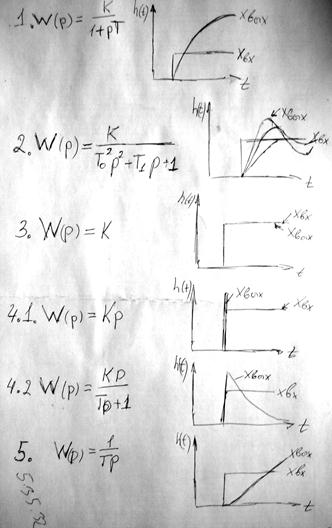 1. W(p) = K / 1+pT
h(t) Xвых
Xвх
t
2. W(p) = K / T₀²p²+T₁p+1
h(t) Xвых
t
3. W(p) = K
h(t) Xвх
Xвых
t
4.1. W(p) = Kp
h(t) Xвых
Xвх
t
4.2 W(p) = Kp / Tp+1
h(t) Xвых
Xвх
t
5. W(p) = 1 / Tp
h(t) Xвых
Xвх
t